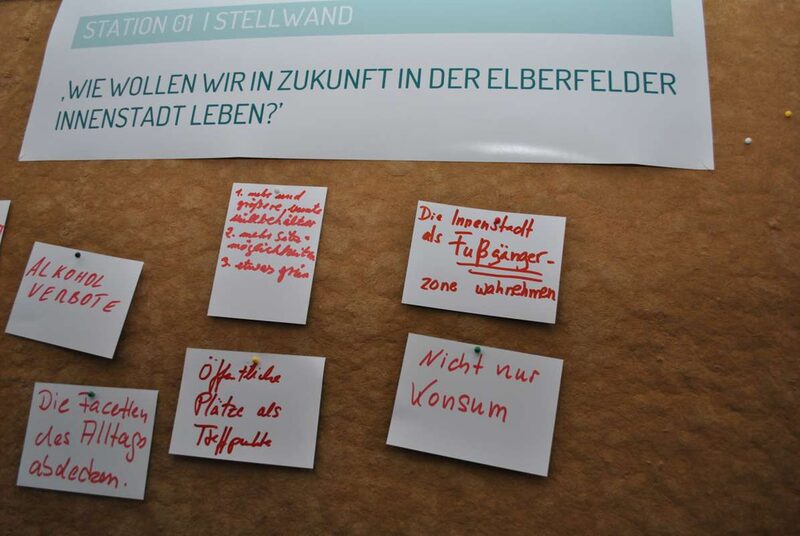 STATION 01 | STELLWAND
‚WIE WOLLEN WIR IN ZUKUNFT IN DER ELBERFELDER
INNENSTADT LEBEN?’
ALKOHOL
VERBOTE
1. mehr und
größere, bunte
Müllbehälter
2. mehr Sitz-
möglichkeiten
3. etwas grün
Die Innenstadt
als Fußgänger-
zone wahrnehmen
Die Facetten
des Alltags
abdecken.
Öffentliche
Plätze als
Treffpunkte
Nicht nur
Konsum